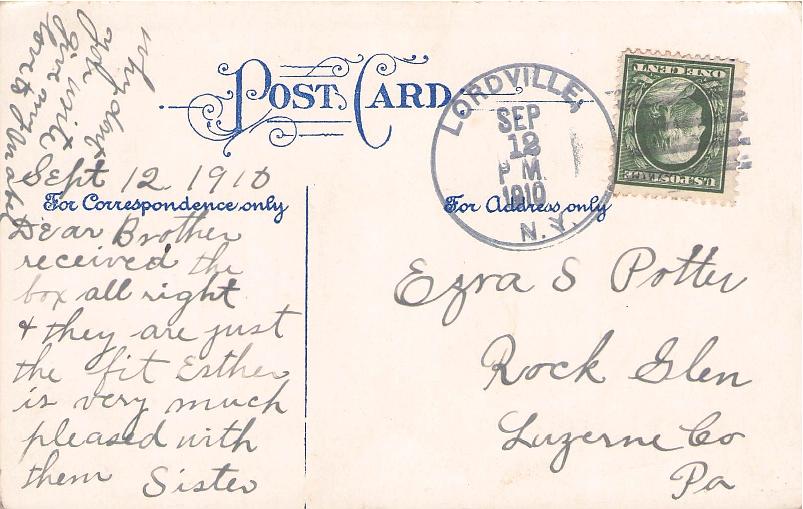 why dont
you write
Give my
love to
POST CARD
LORDVILLE,
SEP
12
P M.
1910
N.Y.
ONE CENT
U.S. POSTAGE
Sept 12, 1910
For Correspondence only
For Address only
Dear Brother
received the
box all right
& they are just
the fit Esther
is very much
pleased with
them Sister
Ezra S Potter
Rock Glen
Luzerne Co
Pa